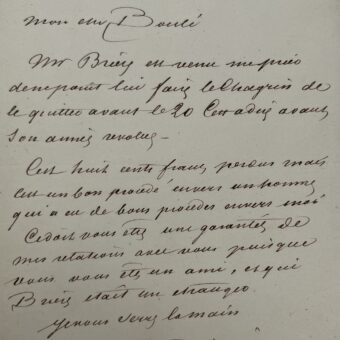 mon cher Boulé
Mr Briès est venu me prier
de ne point lui faire le chagrin de
le quitter avant le 20 C'est à dire avant
son année revolue -
C'est huit cents francs perdus mais
c'est un bon procédé envers un homme
qui a eu de bons procédés envers moi
Ce doit vous etre une garantie de
mes relations avec vous puisque
vous vous etes un ami, et que
Briès était un étranger
Je vous serre la main